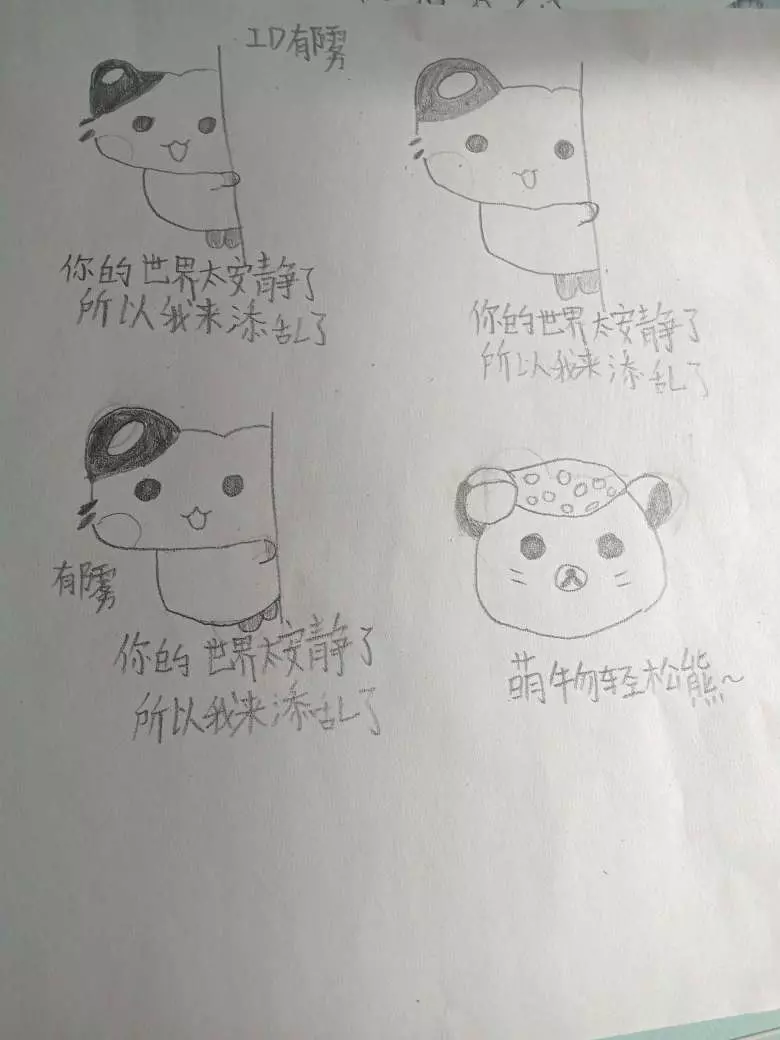 ID有雾
你的世界太安静了
所以我来添乱了
你的世界太安静了
所以我来添乱了
有雾
你的世界太安静了
所以我来添乱了
萌物轻松熊~